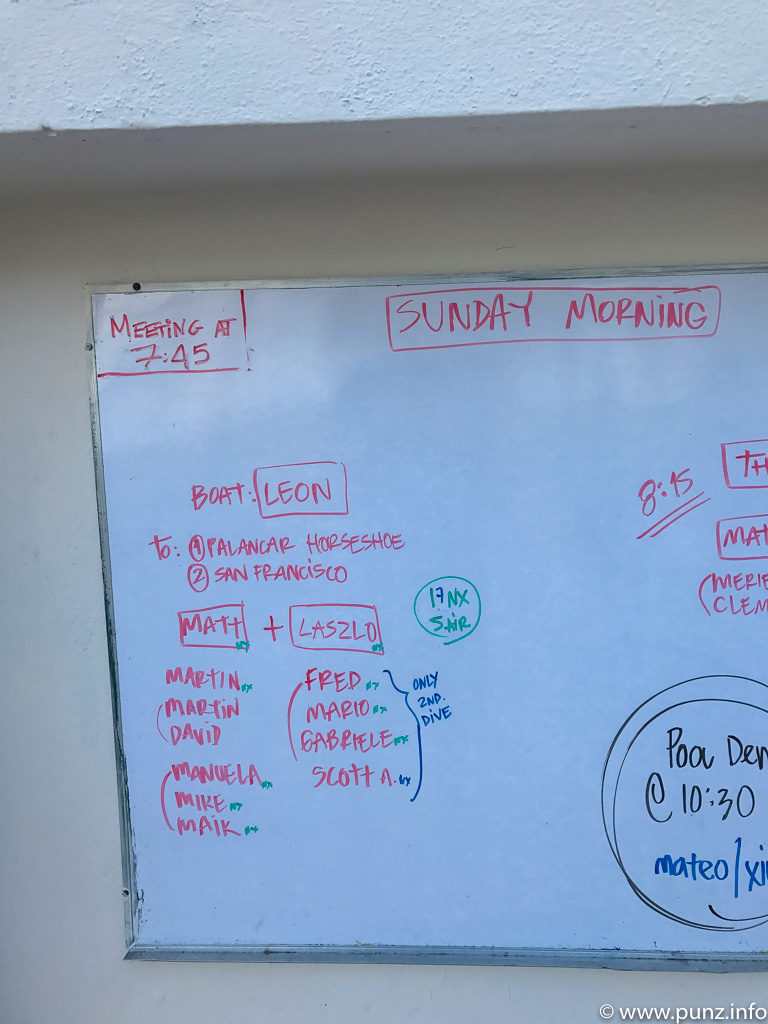 MEETING AT
7:45
SUNDAY MORNING
BOAT: LEON
TO: ① PALANCAR HORSESHOE
② SAN FRANCISCO
MATT NX + LASZLO NX
17 NX
5 AIR
MARTIN NX
MARTIN
DAVID
MANUELA NX
MIKE NX
MAIK NX
FRED NX
MARIO NX
GABRIELE NX
SCOTT A. NX
ONLY
2ND.
DIVE
8:15
TH
MAT
MERIE
CLEM
POOL DEM
@ 10:30
mateo/xi
© www.punz.info